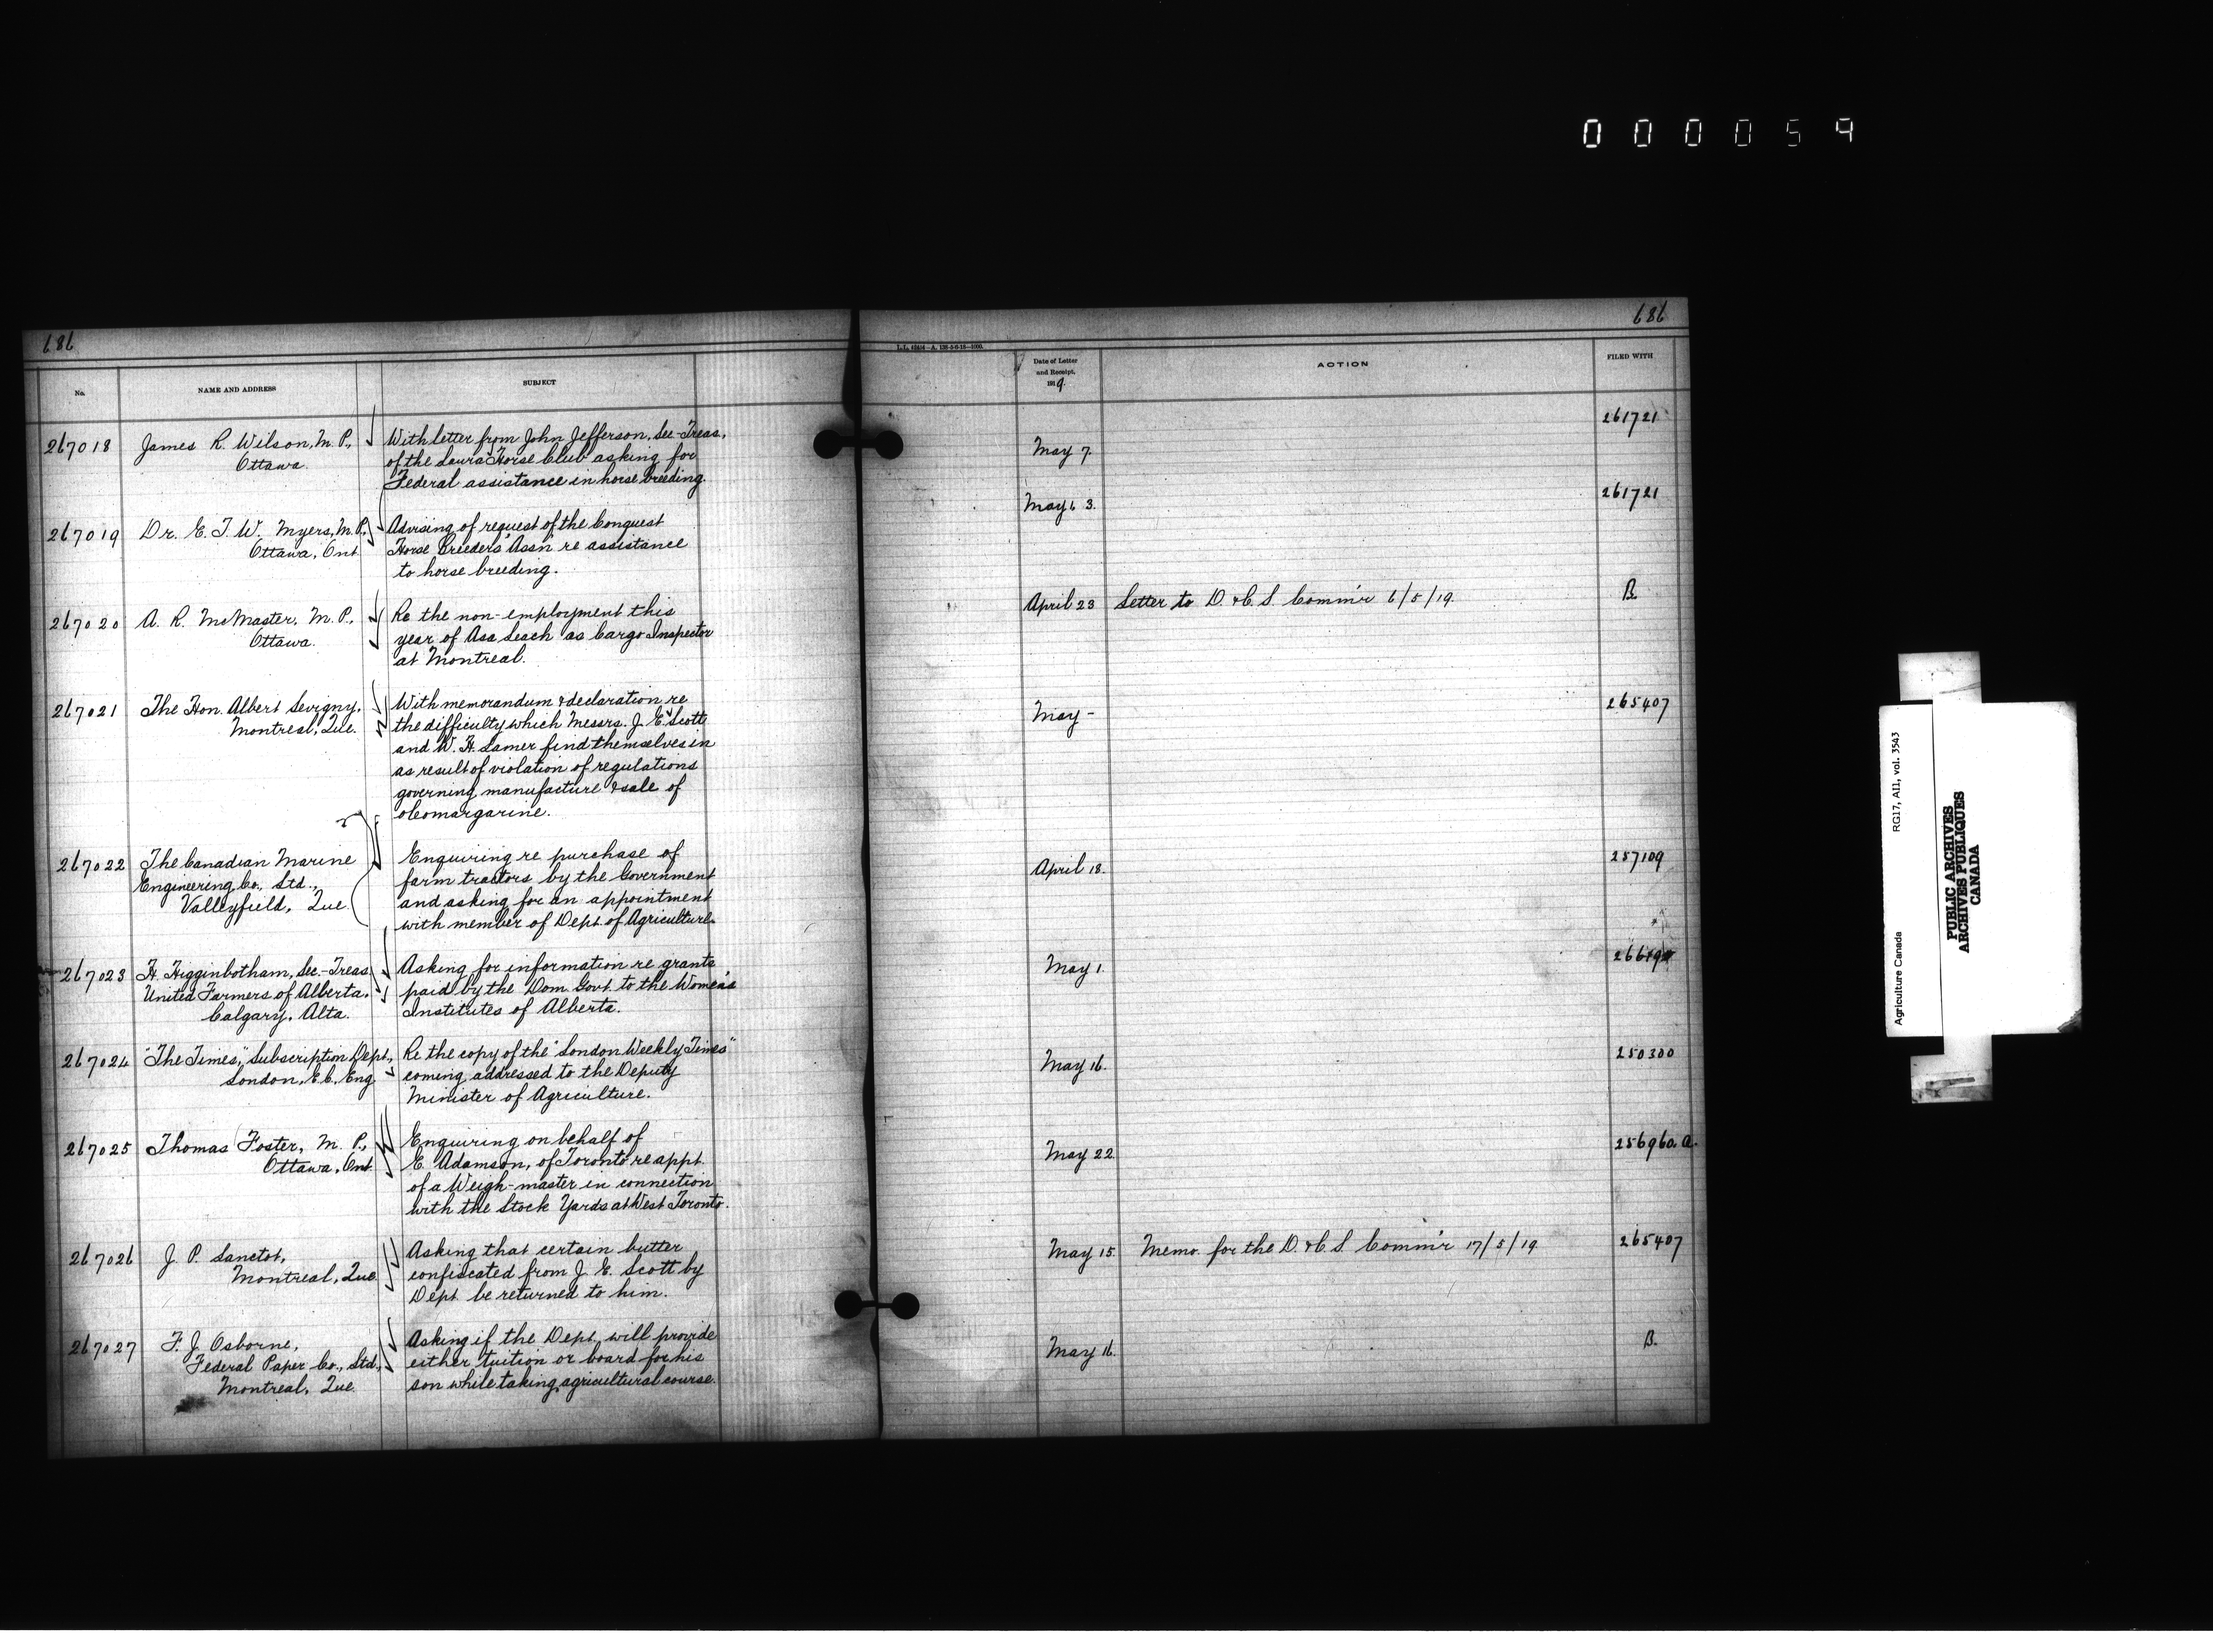 000059
686
686
L.L. 62404—A. 138-5-6-15—1000.
No.
NAME AND ADDRESS
SUBJECT
Date of Letter
and Receipt,
1919.
ACTION
FILED WITH
267018
James R. Wilson, M.P.,
Ottawa.
With letter from John Jefferson, Sec-Treas,
of the Laura Horse Club asking for
Federal assistance in horse breeding.
May 7.
261721
267019
Dr. E. T. W. Myers, M.P.,
Ottawa, Ont
Advising of request of the Conquest
Horse Breeders' Assn re assistance
to horse breeding.
261721
267020
A. R. McMaster, M.P.,
Ottawa.
Re the non-employment this
year of Asa Leach as Cargo Inspector
at Montreal.
April 23
Letter to D. & C. S. Comm'r 6/5/19.
B.
267021
The Hon. Albert Sevigny,
Montreal, Que.
With memorandum & declaration re
the difficulty which Messrs. J. E. Scott
and W. H. Lamer find themselves in
as result of violation of regulations
governing manufacture & sale of
oleomargarine.
May -
265407
267022
The Canadian Marine
Engineering Co., Ltd.,
Valleyfield, Que.
Enquiring re purchase of
farm tractors by the Government
and asking for an appointment
with member of Dept of Agriculture.
April 18.
257109
267023
H. Higginbotham, Sec.-Treas
United Farmers of Alberta,
Calgary, Alta.
Asking for information re grants
paid by the Dom. Govt. to the Women's
Institutes of Alberta.
May 1.
267024
"The Times," Subscription Dept.,
London, E.C., Eng
Re the copy of the "London Weekly Times"
coming addressed to the Deputy
Minister of Agriculture.
May 16.
250300
267025
Thomas Foster, M.P.,
Ottawa, Ont.
Enquiring on behalf of
E. Adamson, of Toronto re appt.
of a Weigh-master in connection
with the Stock Yards at West Toronto.
May 22
256960. a.
267026
J. P. Lanctot,
Montreal, Que
Asking that certain butter
confiscated from J. E. Scott by
Dept be returned to him.
May 15.
Memo. for the D. & C. S. Comm'r 17/5/19.
265407
267027
F. J. Osborne,
Federal Paper Co., Ltd.,
Montreal, Que.
Asking if the Dept. will provide
either tuition or board for his
son while taking agricultural course.
May 16.
B.
Agriculture Canada
RG17, AII, vol. 3543
PUBLIC ARCHIVES
ARCHIVES PUBLIQUES
CANADA